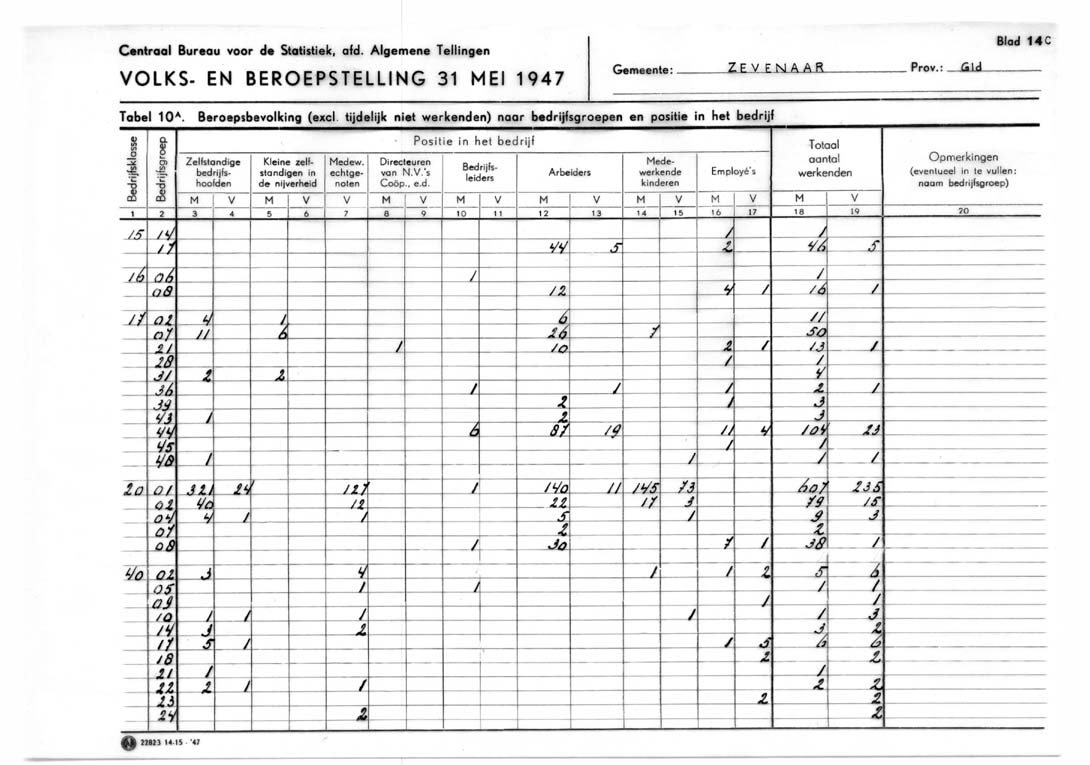 Blad 14C
Centraal Bureau voor de Statistiek, afd. Algemene Tellingen
VOLKS- EN BEROEPSTELLING 31 MEI 1947
Gemeente: ZEVENAAR Prov.: Gld
Tabel 10A. Beroepsbevolking (excl. tijdelijk niet werkenden) naar bedrijfsgroepen en positie in het bedrijf
Bedrijfsklasse Bedrijfsgroep Positie in het bedrijf Totaal aantal werkenden Opmerkingen (eventueel in te vullen: naam bedrijfsgroep)
Zelfstandige bedrijfs-hoofden Kleine zelf-standigen in de nijverheid Medew. echtge-noten Directeuren van N.V.'s Coöp., e.d. Bedrijfs-leiders Arbeiders Mede-werkende kinderen Employé's
M V M V V M V M V M V M V M V M V
1 2 3 4 5 6 7 8 9 10 11 12 13 14 15 16 17 18 19 20
15 14 1 1
17 44 5 2 46 5
16 06 1 1
08 12 4 1 16 1
17 02 4 1 6 11
07 11 6 26 7 50
21 1 10 2 1 13 1
28 1 1
31 2 2 4
36 1 1 1 2 1
39 2 1 3
43 1 2 3
44 6 87 19 11 4 104 23
45 1 1
48 1 1 1 1
20 01 321 24 127 1 140 11 145 73 607 235
02 40 12 22 17 3 79 15
04 4 1 1 5 1 9 3
07 2 2
08 1 30 7 1 38 1
40 02 3 4 1 1 2 5 6
05 1 1 1 1
09 1 1
10 1 1 1 1 1 3
14 3 2 3 2
17 5 1 1 5 6 6
18 2 2
21 1 1
22 2 1 1 2 2
23 2 2
24 2 2
22823 14-15 - '47